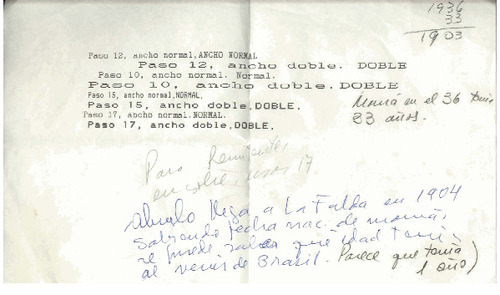 1936
33
1903
Paso 12, ancho normal, ANCHO NORMAL
Paso 12, ancho doble. DOBLE
Paso 10, ancho normal. Normal.
Paso 10, ancho doble. DOBLE
Paso 15, ancho normal, NORMAL,
Paso 15, ancho doble, DOBLE,
Paso 17, ancho normal. NORMAL.
Paso 17, ancho doble, DOBLE,
Mamá en el 36 tenía
33 años.
Para
en sobre, 17
Abuelo llega a La Falda en 1904
Sabiendo fecha nac. de mamá,
se puede saber que edad tenía
al venir de Brasil. Parece que tenía
1 año)